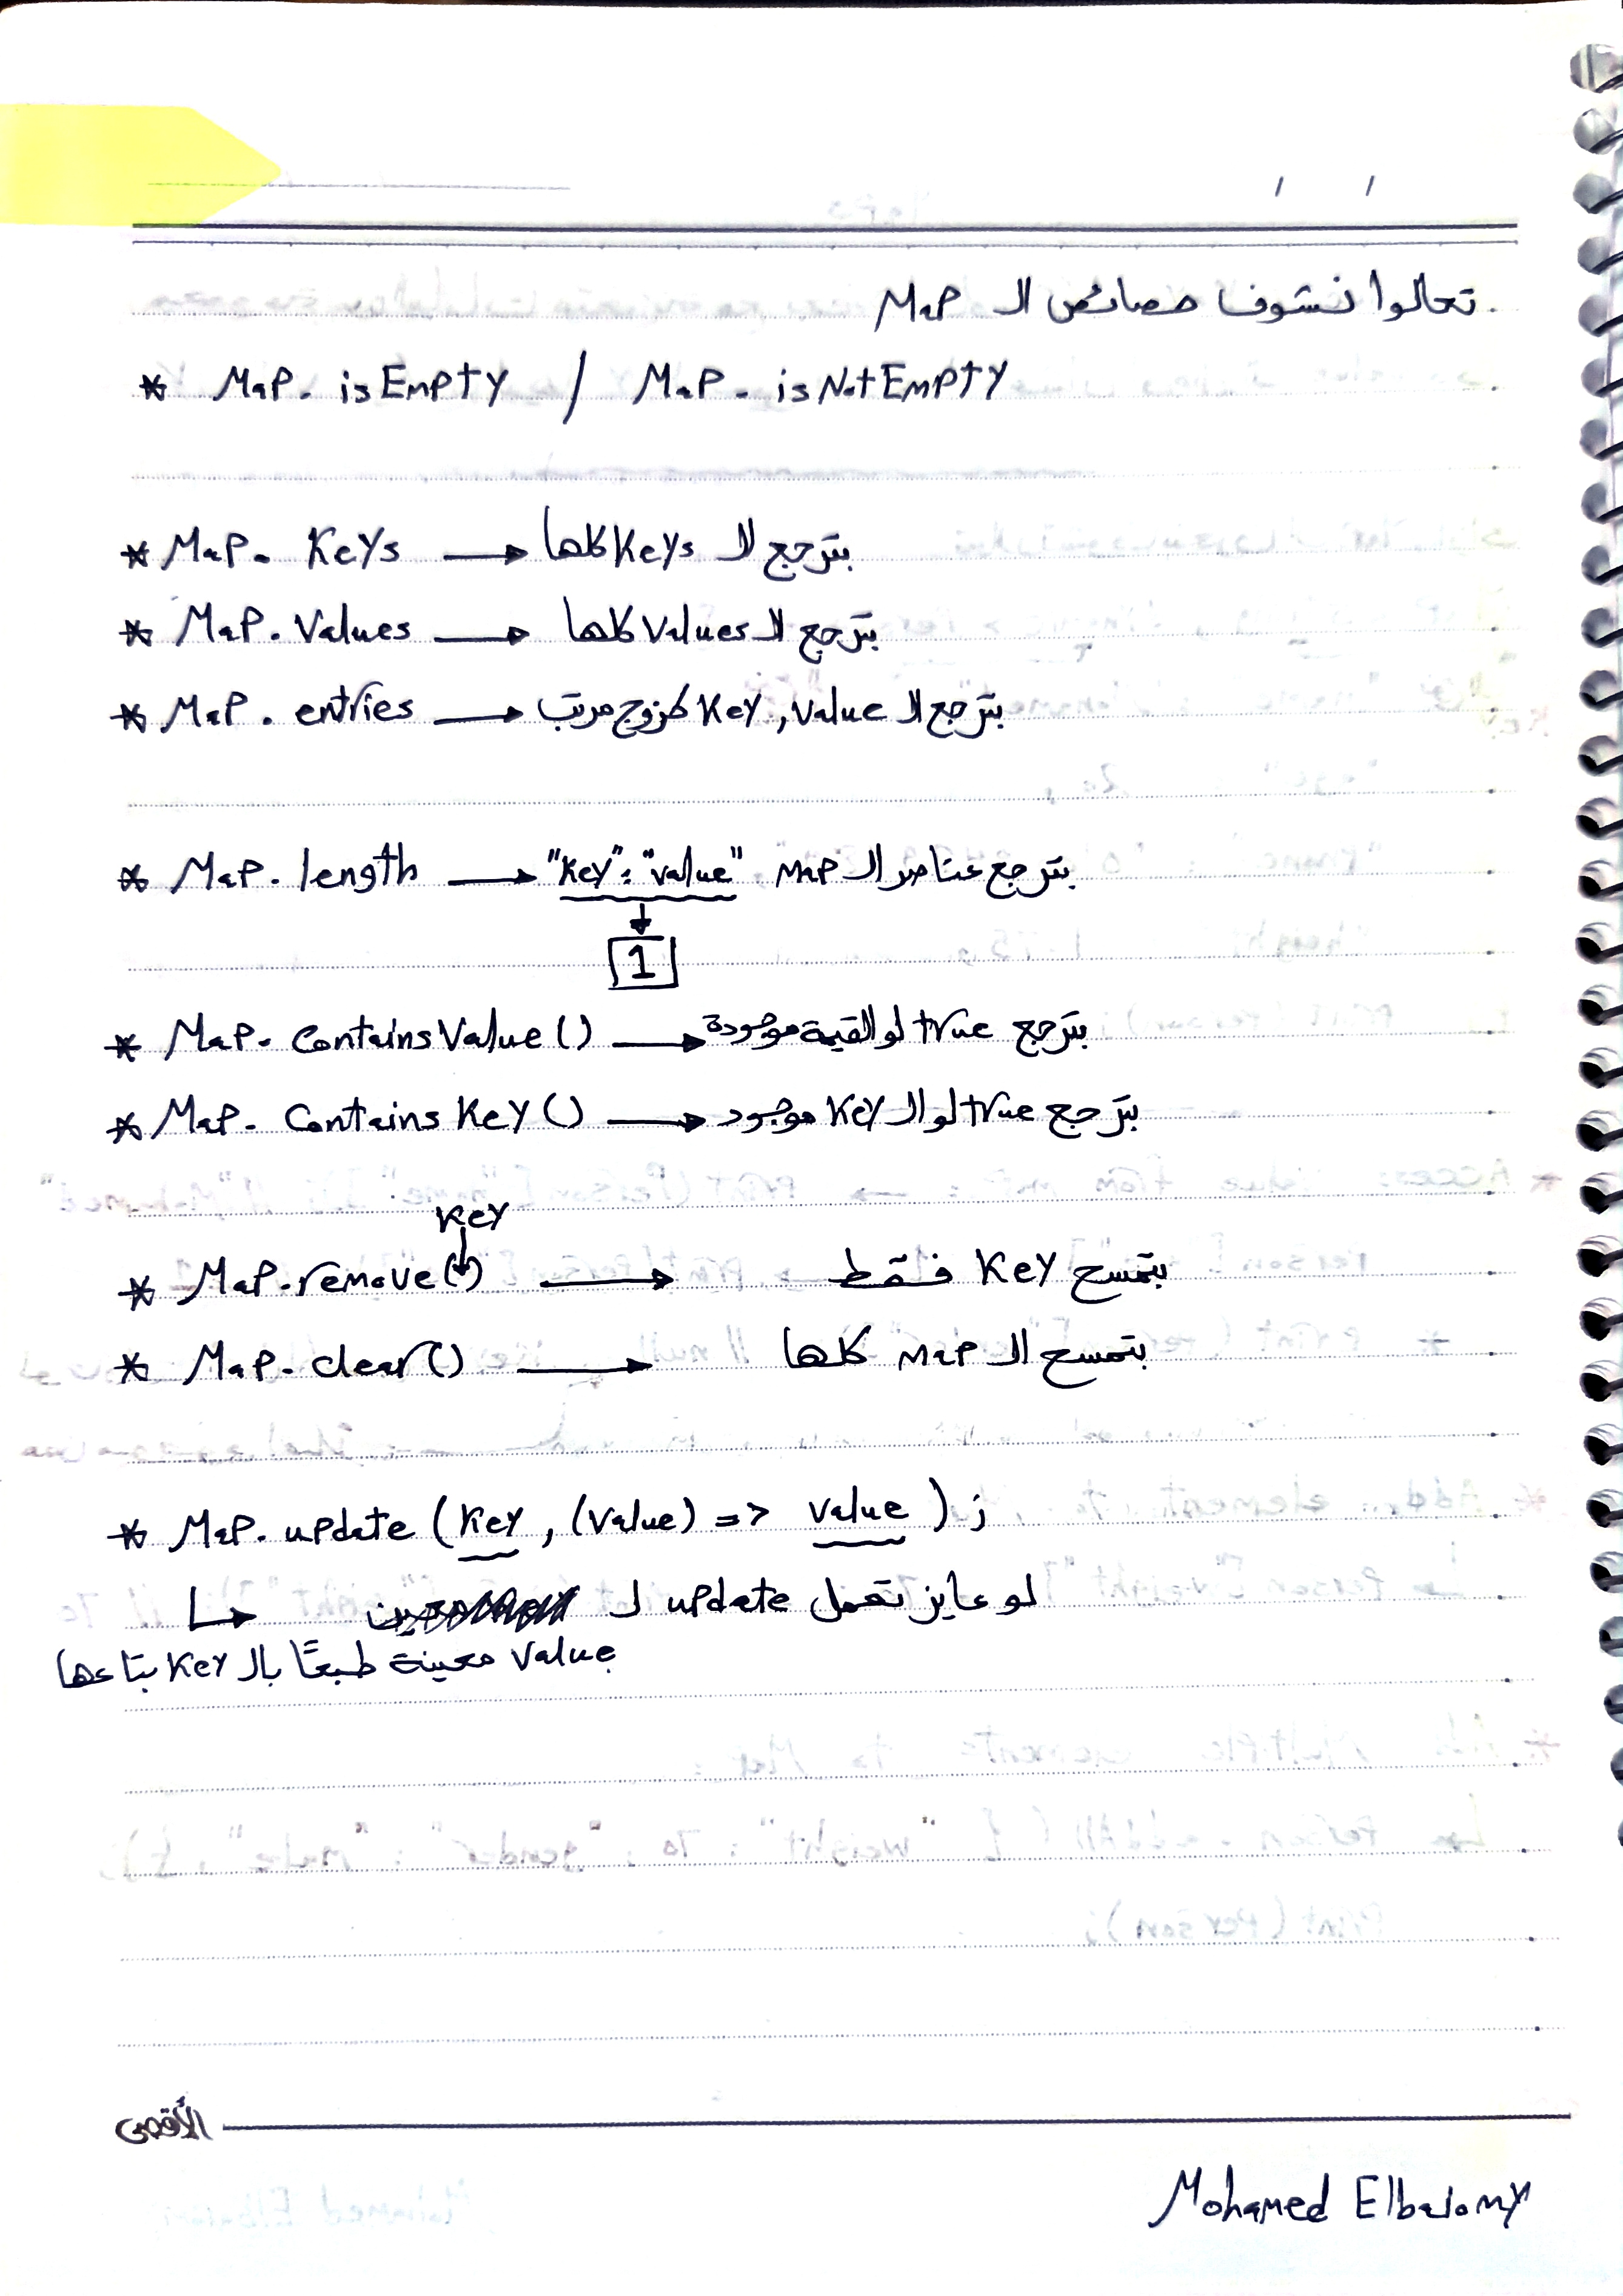 تعالوا نشوف خصائص الـ Map
* Map. isEmpty / Map. isNotEmpty
* Map. Keys → بترجع الـ Keys كلها
* Map. Values → بترجع الـ Values كلها
* Map. entries → بترجع الـ Key, Value كزوج مرتب
* Map. length → بترجع عناصر الـ Map "Key": "value"
1
* Map. ContainsValue() → بترجع true لو القيمة موجودة
* Map. Contains Key () → بترجع true لو الـ Key موجود
Key
* Map.remove() → بتمسح Key فقط
* Map. clear() → بتمسح الـ Map كلها
* Map. update (Key, (Value) => value );
لو عايز تعمل update لـ
value معينة طبعًا بالـ Key بتاعها
الأقصى
Mohamed Elbalomy